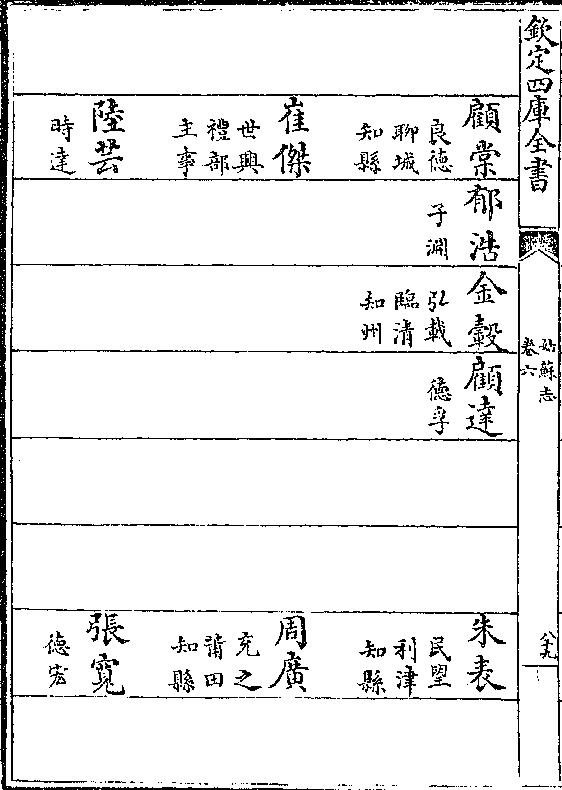 欽定四庫全書
姑蘇志
卷六
顧棠
良德
聊城
知縣
崔傑
世興
禮部
主事
陸芸
時達
郁浩
子淵
金轂
弘載
臨清
知州
顧達
德孚
朱表
民望
利津
知縣
周廣
充之
莆田
知縣
張寬
德宏